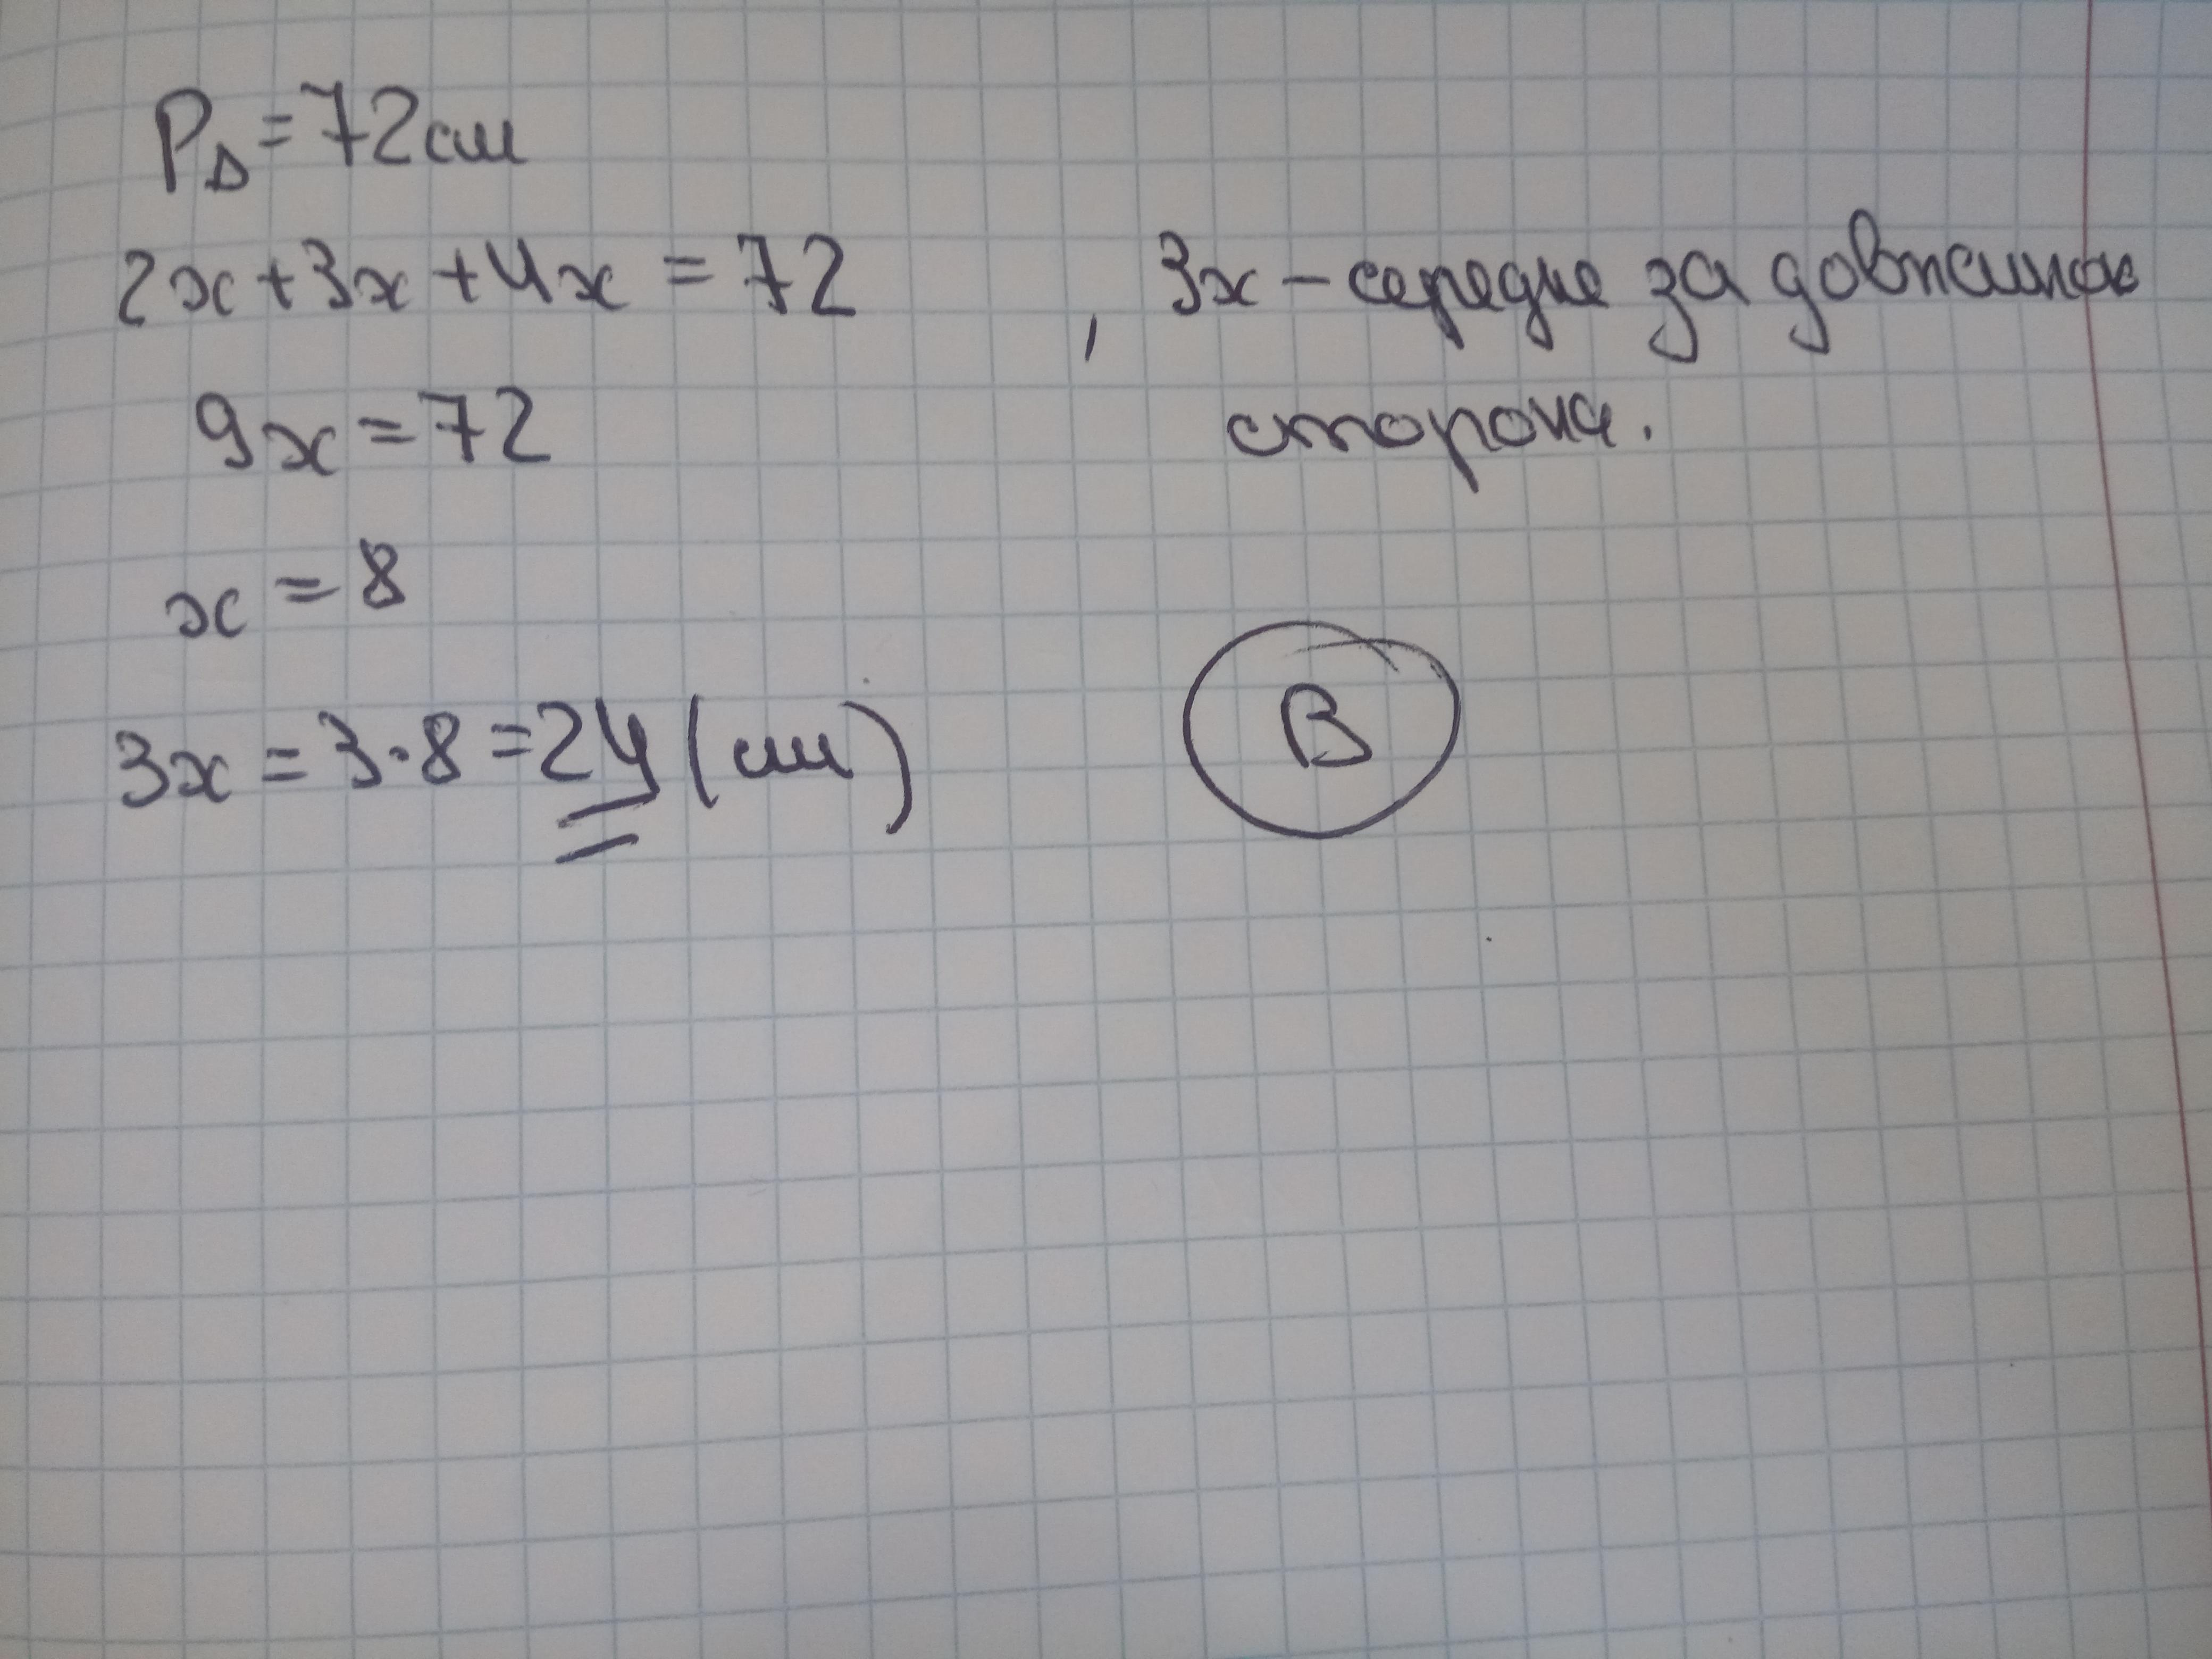 P∆=72см
2x+3x+4x=72, 3x-середня за довжиною
9x=72 сторона.
x=8
3x=3·8=24(см) В